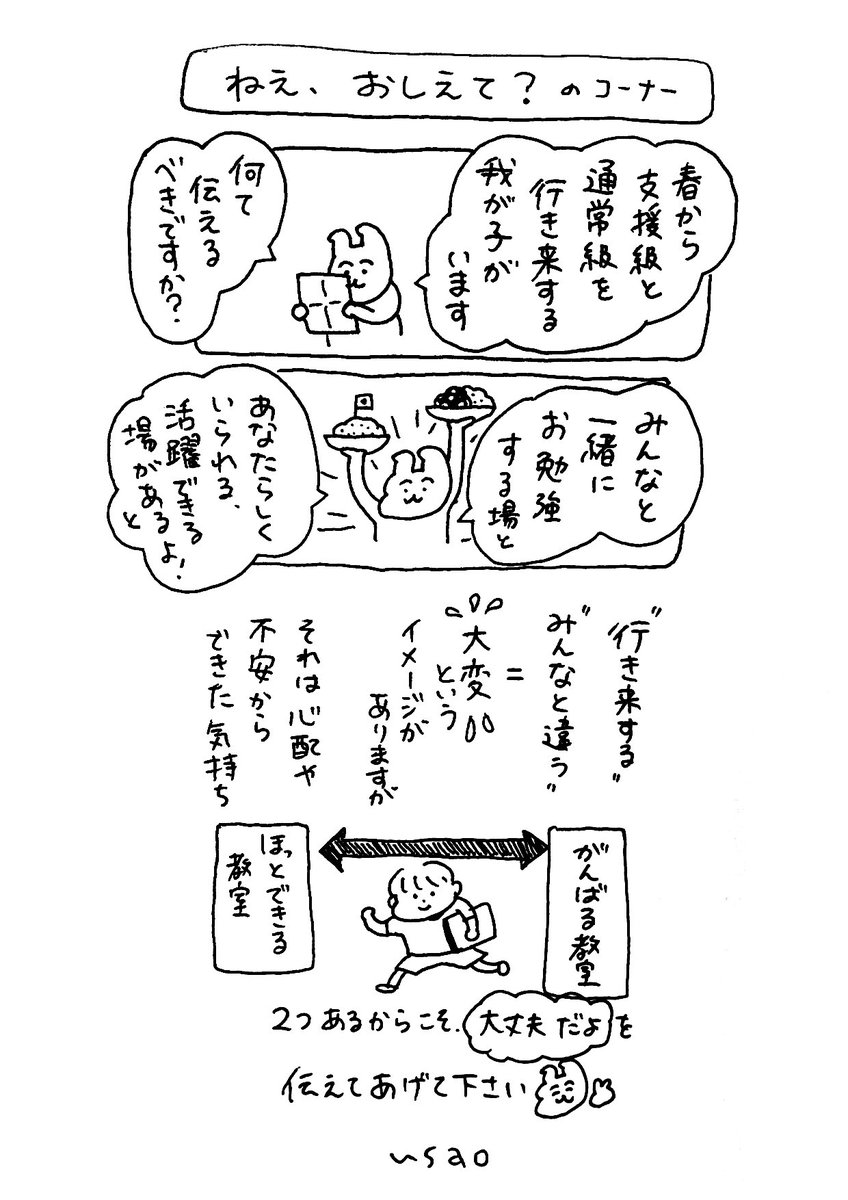 ねえ、おしえて？のコーナー
春から
支援級と
通常級を
行き来する
我が子が
います
何て
伝える
べきですか？
みんなと
一緒に
お勉強
する場と
あなたらしく
いられる、
活躍できる
場があるよ！と
"行き来する"
"みんなと違う"
=
大変
という
イメージが
ありますが
それは心配や
不安から
できた気持ち
がんばる教室
ほっとできる
教室
2つあるからこそ、大丈夫だよを
伝えてあげて下さい
いsao